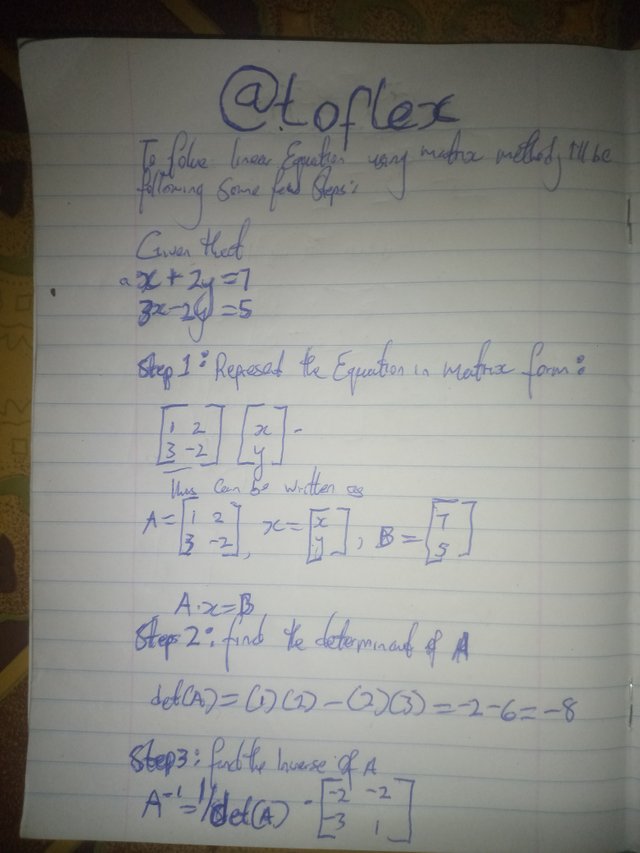 @toflex
To Solve linear Equation using matrix method, I'll be
following Some few Steps:
Given that
x + 2y = 7
3x - 2y = 5
Step 1: Represent the Equation in matrix form:
[1 2
3 -2] [x
y] =
This can be written as
A = [1 2
3 -2], x = [x
y], B = [7
5]
A·x = B
Steps 2: find the determinant of A
det(A) = (1)(2) - (2)(3) = -2 - 6 = -8
Step 3: find the Inverse of A
A⁻¹ = 1/det(A) · [-2 -2
-3 1]